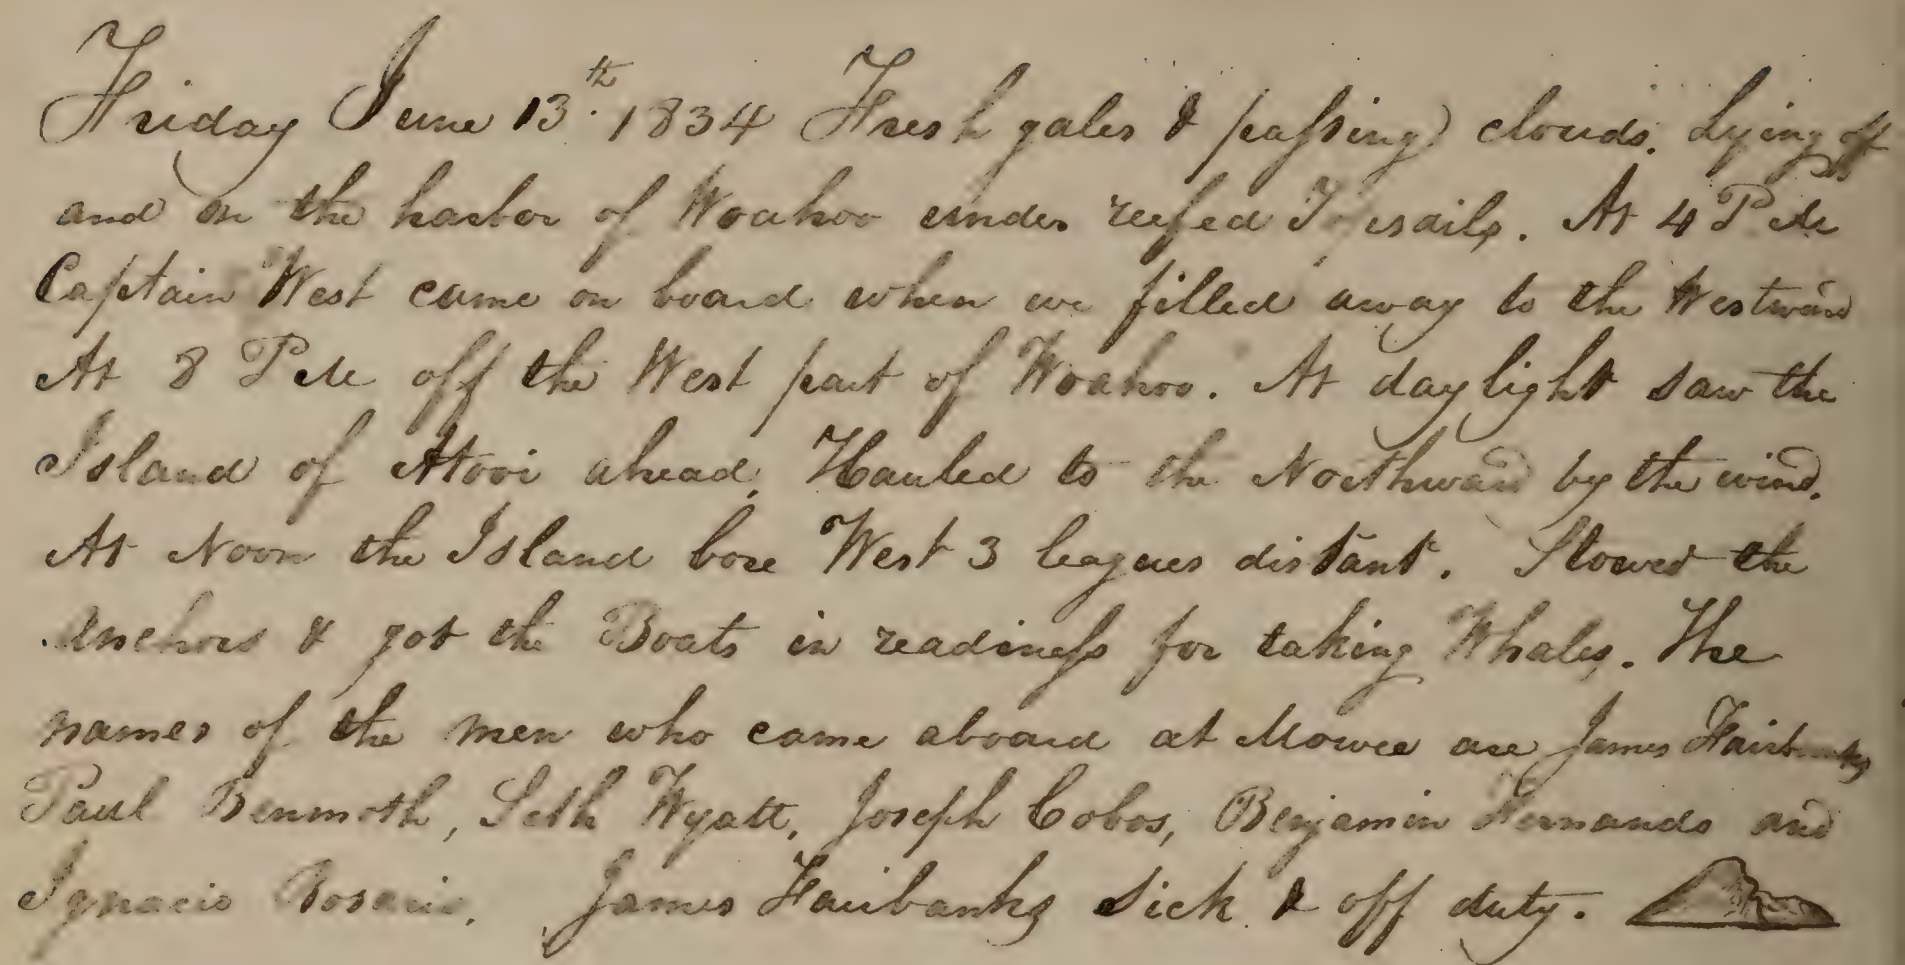 Friday June 13th. 1834 Fresh gales & passing clouds. Lying off
and on the harbor of Woahoo under reefed Topsails. At 4 PM
Captain West came on board when we filled away to the Westward
At 8 PM off the West part of Woahoo. At daylight saw the
Island of Atooi ahead, Hauled to the Northward by the wind.
At Noon the Island bore West 3 leagues distant. Stowed the
Anchors & got the Boats in readiness for taking Whales. The
names of the men who came aboard at Mowee are James Fairbanks
Paul Benmoth, Seth Wyatt, Joseph Cobos, Benjamin Fernando and
Ignacio Rosario. James Fairbanks Sick & off duty.